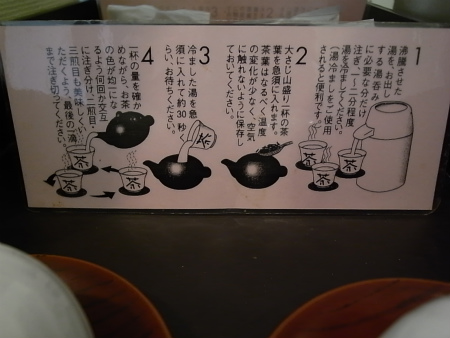 1
沸騰させた
湯をお出し
する湯呑み
に必要な分だけ
注ぎ、一〜二分程度
湯を冷ましてください。
(湯冷ましをご使用
されると便利です。)
2
大さじ山盛り一杯の茶
葉を急須に入れます。
茶葉はなるべく温度
の変化が少なく、空気
に触れないように保存し
ておいてください。
3
冷ました湯を急
須に入れて約30秒く
らい、お待ちください。
4
一杯の量を確か
めながら、お茶
の色が均一にな
るよう何回か交互
に注ぎ分け、二煎目、
三煎目も美味しくい
ただくよう、最後の一滴
まで注ぎ切ってください。
茶
茶
茶
茶
茶
茶
茶